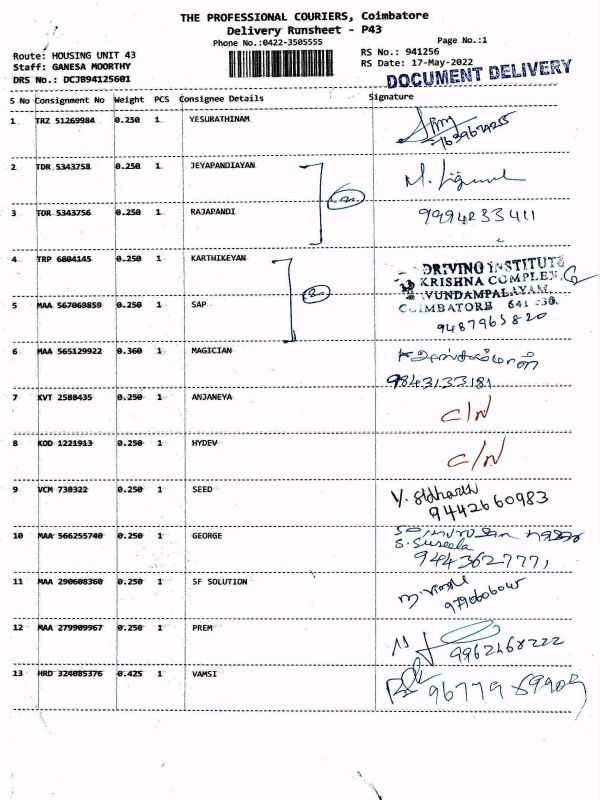 THE PROFESSIONAL COURIERS, Coimbatore
Delivery Runsheet - P43
Phone No.:0422-3505555
Page No.:1
Route: HOUSING UNIT 43
RS No.: 941256
Staff: GANESA MOORTHY
RS Date: 17-May-2022
DRS No.: DCJB94125601
DOCUMENT DELIVERY
S No Consignment No Weight PCS Consignee Details Signature
1 TRZ 51269984 0.250 1 YESURATHINAM
2 TDR 5343758 0.250 1 JEYAPANDIYAN
3 TDR 5343756 0.250 1 RAJAPANDI
9994233411
4 TRP 6804145 0.250 1 KARTHIKEYAN
DRIVING INSTITUTE
KRISHNA COMPLEX,
VUNDAMPALAYAM,
COIMBATORE 641 030.
5 MAA 567069859 0.250 1 SAP
9487965820
6 MAA 565129922 0.360 1 MAGICIAN
9843133181
7 KVT 2588435 0.250 1 ANJANEYA C/N
8 KOD 1221913 0.250 1 HYDEV C/N
9 VCM 738322 0.250 1 SEED Y. Siddharth
9442660983
10 MAA 566255740 0.250 1 GEORGE
S. Suseela
9444362777,
11 MAA 290608360 0.250 1 SF SOLUTION
9790606045
12 MAA 279909967 0.250 1 PREM
9962468222
13 HRD 324085376 0.425 1 VAMSI